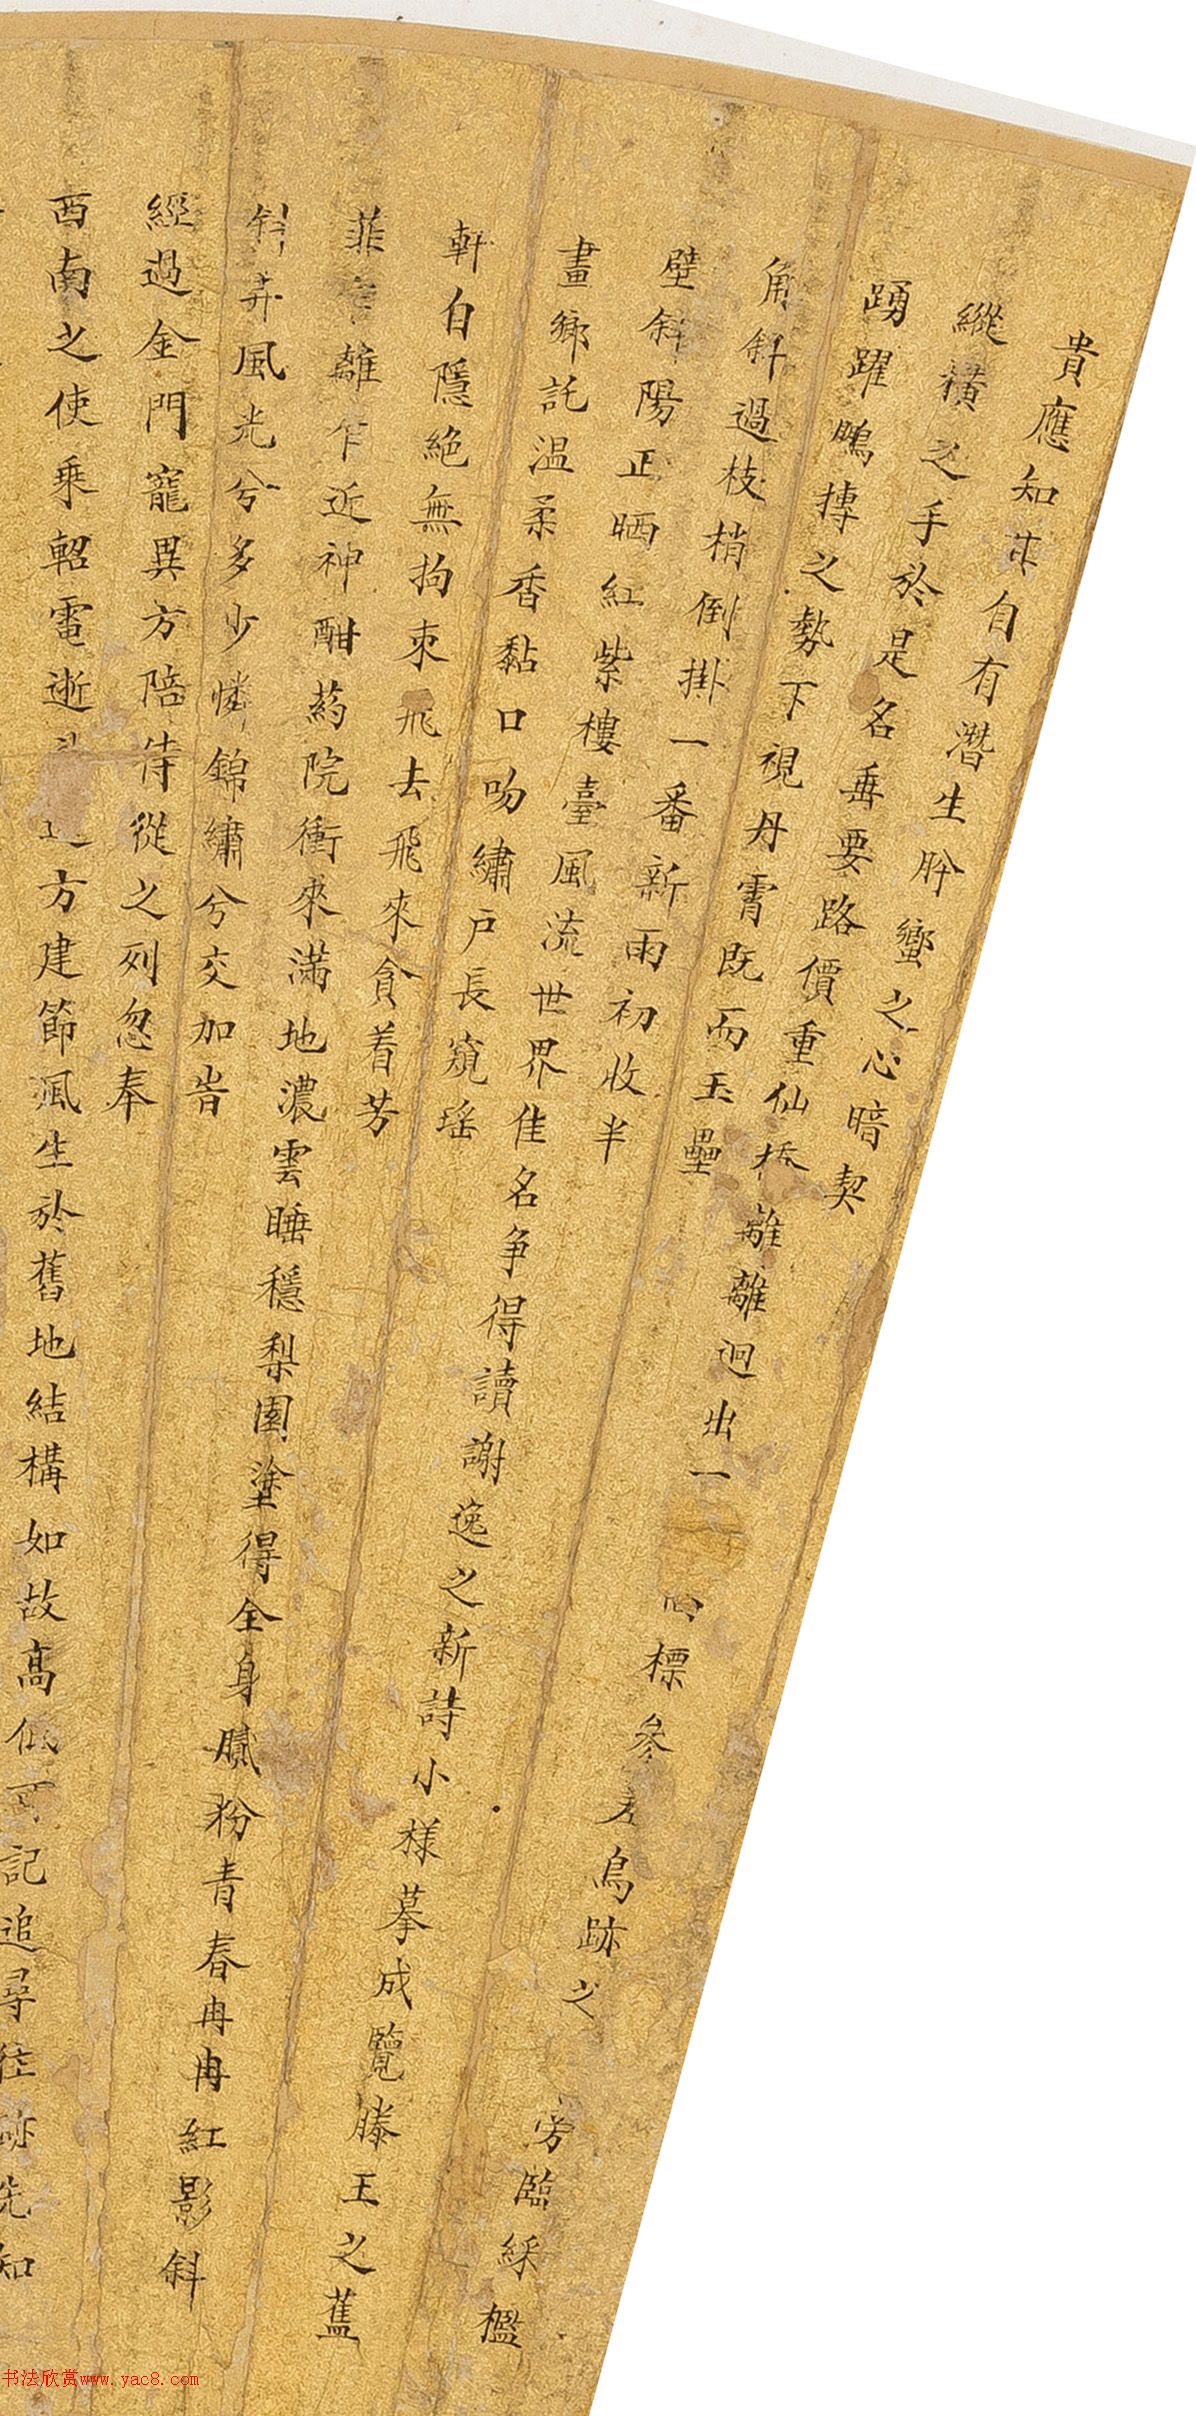 貴應知才自有潛生肸蠁之心暗契
縱橫之手於是名垂要路價重仙橋離離迥出一標參差鳥跡之旁臨綵檻
踴躍鵬摶之勢下視丹霄既而玉壘
角斜過枝梢倒掛一番新雨初收半
壁斜陽正晒紅紫樓臺風流世界佳名爭得讀謝逸之新詩小樣摹成覽滕王之舊
畫鄉託温柔香黏口吻繡户長窺瑤
軒自隱絶無拘束飛去飛來貪着芳
菲離乍近神酣葯院衝來滿地濃雲睡穩梨園塗得全身膩粉青春冉冉紅影斜
斜弄風光兮多少憐錦繡兮交加昔
經過金門寵異方陪侍從之列忽奉
西南之使乘軺電逝方建節風生於舊地結構如故高低可記追尋往跡先知
书法欣赏www.yac8.com